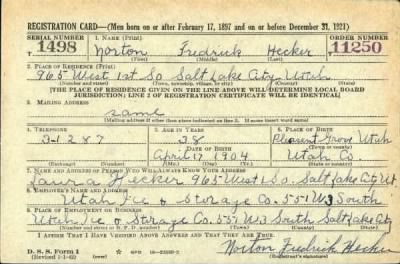 REGISTRATION CARD—(Men born on or after February 17, 1897 and on or before December 31, 1921)
SERIAL NUMBER 1. NAME (Print) ORDER NUMBER
T 1498 Norton Fredrick Hecker 11250
(First) (Middle) (Last)
2. PLACE OF RESIDENCE (Print)
965 West 1st So Salt Lake City Utah
(Number and street) (Town, township, village, or city) (County) (State)
[THE PLACE OF RESIDENCE GIVEN ON THE LINE ABOVE WILL DETERMINE LOCAL BOARD
JURISDICTION; LINE 2 OF REGISTRATION CERTIFICATE WILL BE IDENTICAL]
3. MAILING ADDRESS
same
[Mailing address if other than place indicated on line 2. If same insert word same]
4. TELEPHONE 5. AGE IN YEARS 6. PLACE OF BIRTH
3-1287 38 Pleasant Grove Utah
DATE OF BIRTH (Town or county)
April 17 1904 Utah Co.
(Exchange) (Number) (Mo.) (Day) (Yr.) (State or country)
7. NAME AND ADDRESS OF PERSON WHO WILL ALWAYS KNOW YOUR ADDRESS
Laura Hecker 965 West 1 So. Salt Lake City Ut
8. EMPLOYER'S NAME AND ADDRESS
Utah Ice & Storage Co. 551 W 3 South
9. PLACE OF EMPLOYMENT OR BUSINESS
Utah Ice & Storage Co. 551 W 3 South Salt Lake City
(Number and street or R. F. D. number) (Town) (County) (State)
I AFFIRM THAT I HAVE VERIFIED ABOVE ANSWERS AND THAT THEY ARE TRUE.
D. S. S. Form 1
(Revised 1-1-42) (over)
Norton Fredrick Hecker